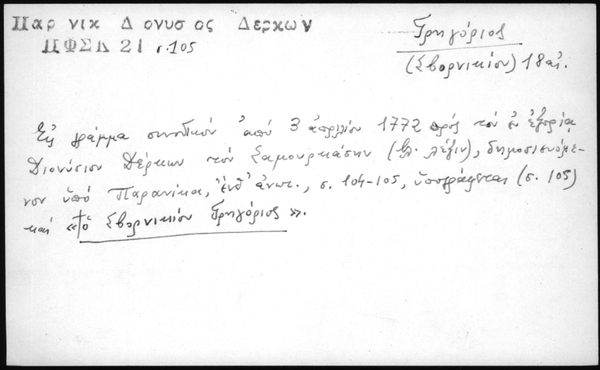 Παρ νικ Δ ονυσ ος Δερκων
ΠΦΣΔ 21 σ.105
Γρηγόριος
(Σβορνικίου) 18 αἰ.
Εἰς γράμμα συνοδικόν ἀπό 3 ἀπριλίου 1772 πρός τόν ἐν ἐξορίᾳ
Διονύσιον Δέρκων τόν Σαμουρκάσην (βλ. λέξιν), δημοσιευόμε-
νον ὑπό Παρανίκα, ἔνθ' ἀνωτ., σ. 104-105, ὑπογράφεται (σ. 105)
καί «† ὁ Σβορνικίου Γρηγόριος».